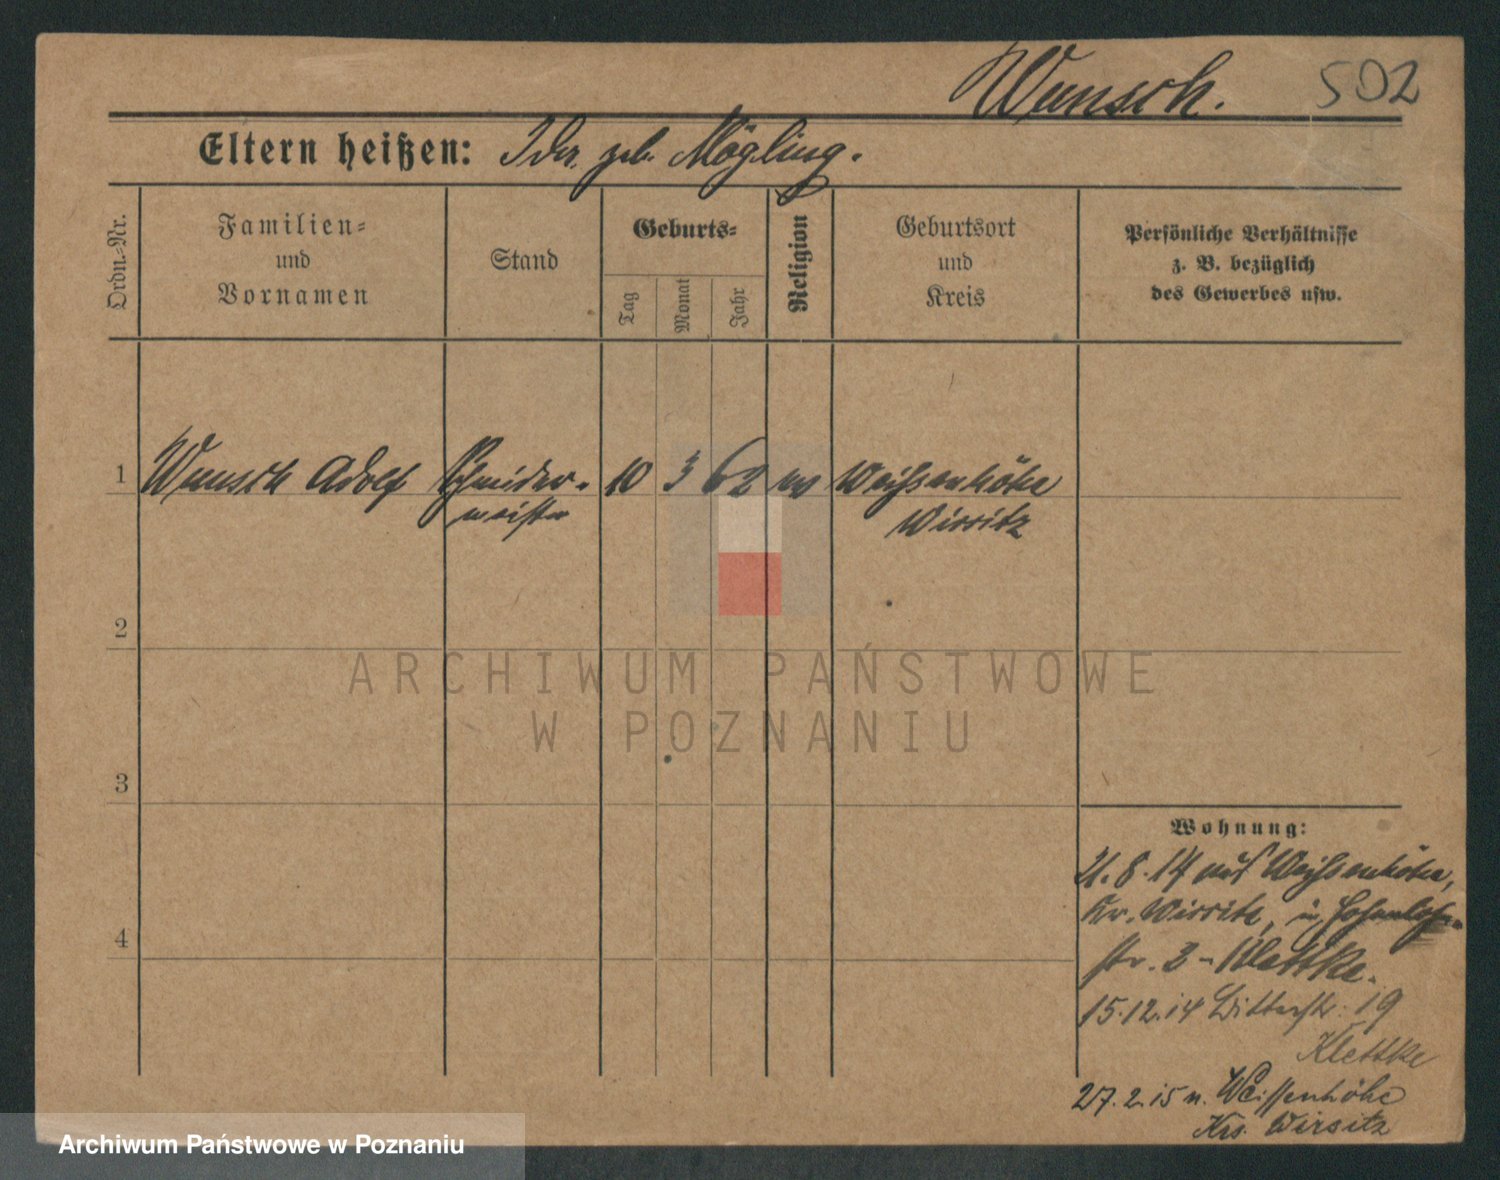 Wunsch. 502
Eltern heißen: geb. Mögling.
Ordn.-Nr.
Familien-
und
Vornamen
Stand
Geburts-
Tag
Monat
Jahr
Religion
Geburtsort
und
Kreis
Persönliche Verhältnisse
z. B. bezüglich
des Gewerbes usw.
1 Wunsch Adolf Schneider- 10 3 62 Weißenhöhe
meister Wirsitz
2
3
4
Wohnung:
21.8.14 aus Weißenhöhe,
Kr. Wirsitz, in Hohenlohe-
str. 2 - Klettke.
15.12.14 Ritterstr. 19
Klettke
27.2.15 n. Weissenhöhe
Krs. Wirsitz
ARCHIWUM PAŃSTWOWE
W POZNANIU
Archiwum Państwowe w Poznaniu